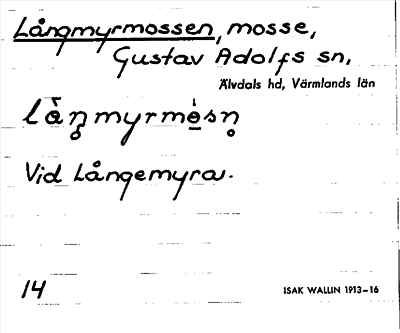 Långmyrmossen, mosse,
Gustav Adolfs sn,
Älvdals hd, Värmlands län
Vid Långemyra.
14
ISAK WALLIN 1913–16